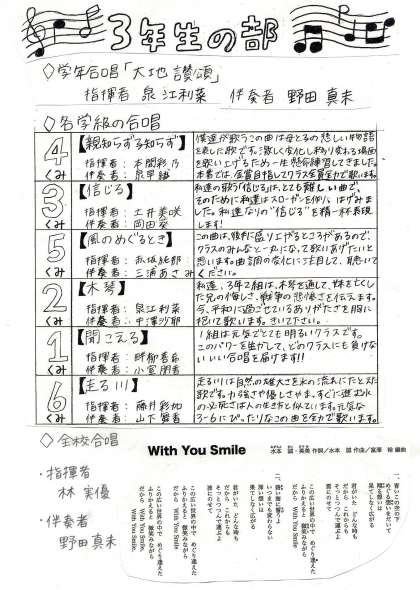 3年生の部
◇学年合唱「大地讃頌」
指揮者 泉 江利菜 伴奏者 野田 真未
◇各学級の合唱
4くみ
【親知らず子知らず】
指揮者:本間彩乃
伴奏者:
僕達が歌うこの曲は母と子の悲しい物語
を表した歌です。激しく変化し移り変わる場面
を歌い上げるため一生懸命練習してきました。
本番では、金賞目指してクラス全員全力で歌います。
3くみ
【信じる】
指揮者:土井美咲
伴奏者:岡田葵
私達の歌う「信じる」は、とても難しい曲で、
そのために私達はスローガンを作り、はげみま
した。私達なりの"信じる"を精一杯表現
します!
5くみ
【風のめぐるとき】
指揮者:赤坂純郎
伴奏者:三浦あさみ
この曲は、後半に盛り上がるところがあるので、
クラスのみんなと一丸になって歌いあげたいと
思います。曲調の変化に注目して、聴いて
ください。
2くみ
【木琴】
指揮者:泉江利菜
伴奏者:中澤沙耶
私達、3年2組は、木琴を通して、妹を亡くし
た兄の悔しさ、戦争の悲惨さを伝えます。
今、平和に過ごせているありがたさを胸に
抱いて歌います。きいて下さい。
1くみ
【聞こえる】
指揮者:
伴奏者:小室朋香
1組は元気でとても明るいクラスです。
このパワーを生かして、どのクラスにも負けな
いいい合唱を届けます!!
6くみ
【走る川】
指揮者:藤井彩加
伴奏者:山下賢者
走る川は自然の雄大さを水の流れにたとえた
歌です。力強さや優しさや、すぐに進む水
の必死さは人の生き方と似ています。元気な
ろーるにぴったりなこの曲を全力で歌います。
◇全校合唱
・指揮者
林 実優
・伴奏者
野田真未
With You Smile
水本 誠・英美 作詞/水本 誠 作曲/富澤 裕 編曲
一、青いこの空の下
果てしなく広がる
君がいた どんな時も
だから これからも
そっとつつんで運ぶよ
この広い世界の中で めぐり逢えた
ふりかえると 微笑みながら
だから With You Smile
With You Smile